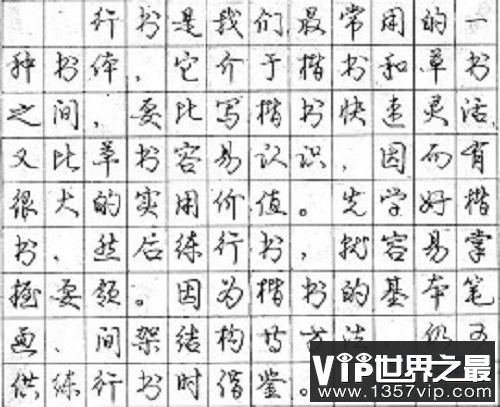 行书是我们最常用的一
种书体，它介于楷书和草书
之间，要比写楷书快速灵活，
又比草书容易认识，因而有
很大的实用价值。先学好楷
书，然后练行书，就容易掌
握要领。因为楷书的基本笔
画、间架结构等方法，仍可
供练行书时借鉴。
VIP世界之最
www.1357vip.com